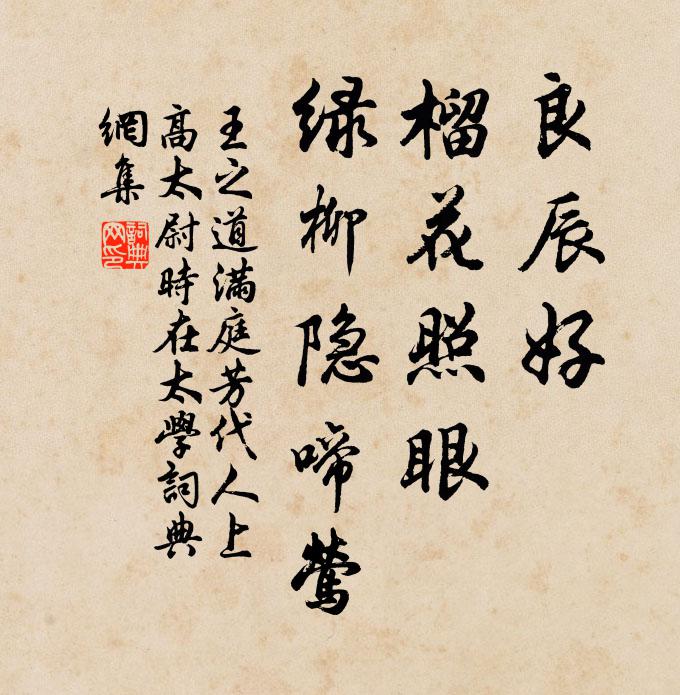 良辰好
榴花照眼
绿柳隐啼莺
王之道满庭芳代人上
高太尉時在太學詞典
網集
詞典
网印